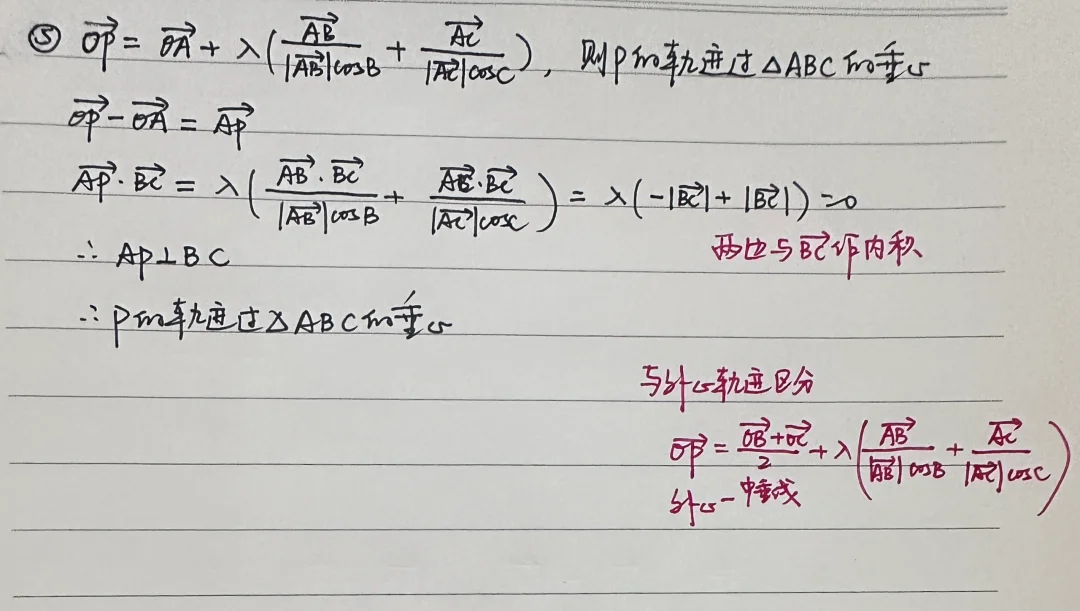 ⑤ $\overrightarrow{OP} = \overrightarrow{OA} + \lambda(\frac{\overrightarrow{AB}}{|\overrightarrow{AB}|\cos B} + \frac{\overrightarrow{AC}}{|\overrightarrow{AC}|\cos C})$, 则P的轨迹过△ABC的垂心
$\overrightarrow{OP} - \overrightarrow{OA} = \overrightarrow{AP}$
$\overrightarrow{AP} \cdot \overrightarrow{BC} = \lambda(\frac{\overrightarrow{AB} \cdot \overrightarrow{BC}}{|\overrightarrow{AB}|\cos B} + \frac{\overrightarrow{AC} \cdot \overrightarrow{BC}}{|\overrightarrow{AC}|\cos C}) = \lambda(-|\overrightarrow{BC}| + |\overrightarrow{BC}|) = 0$
两边与$\overrightarrow{BC}$作内积
∴ AP⊥BC
∴ P的轨迹过△ABC的垂心
与外心轨迹区分
$\overrightarrow{OP} = \frac{\overrightarrow{OB} + \overrightarrow{OC}}{2} + \lambda(\frac{\overrightarrow{AB}}{|\overrightarrow{AB}|\cos B} + \frac{\overrightarrow{AC}}{|\overrightarrow{AC}|\cos C})$
外心－中垂线